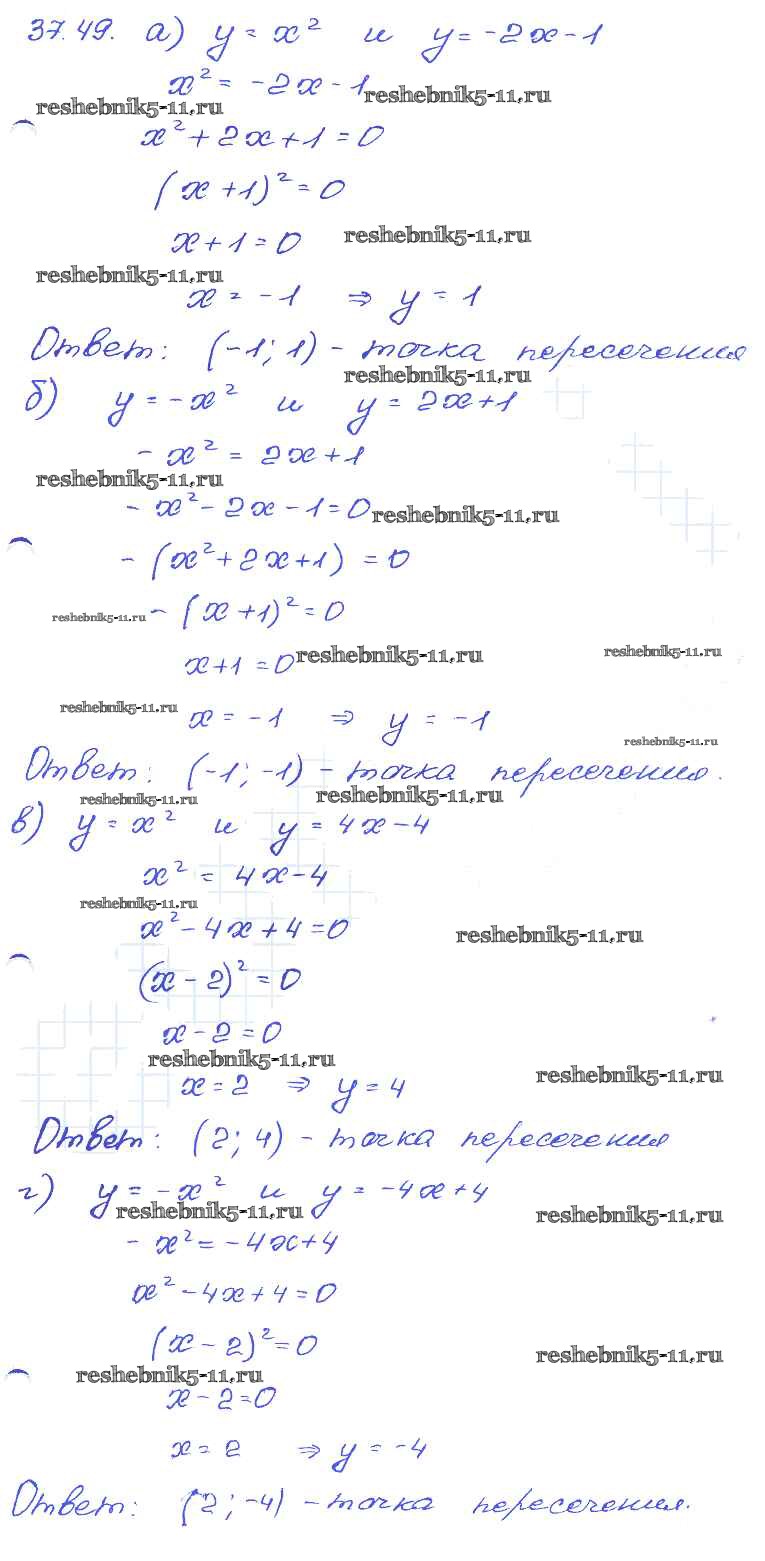 37.49. а) y = x² и y = -2x - 1
x² = -2x - 1
reshebnik5-11.ru reshebnik5-11.ru
x² + 2x + 1 = 0
(x + 1)² = 0
x + 1 = 0 reshebnik5-11.ru
reshebnik5-11.ru
x = -1 ⇒ y = 1
Ответ: (-1; 1) - точка пересечения
reshebnik5-11.ru
б) y = -x² и y = 2x + 1
-x² = 2x + 1
reshebnik5-11.ru
-x² - 2x - 1 = 0 reshebnik5-11.ru
-(x² + 2x + 1) = 0
reshebnik5-11.ru -(x + 1)² = 0
x + 1 = 0 reshebnik5-11.ru reshebnik5-11.ru
reshebnik5-11.ru
x = -1 ⇒ y = -1
reshebnik5-11.ru
Ответ: (-1; -1) - точка пересечения.
reshebnik5-11.ru reshebnik5-11.ru
в) y = x² и y = 4x - 4
x² = 4x - 4
reshebnik5-11.ru
x² - 4x + 4 = 0 reshebnik5-11.ru
(x - 2)² = 0
x - 2 = 0
reshebnik5-11.ru reshebnik5-11.ru
x = 2 ⇒ y = 4
Ответ: (2; 4) - точка пересечения
г) y = -x² и y = -4x + 4
reshebnik5-11.ru reshebnik5-11.ru
-x² = -4x + 4
x² - 4x + 4 = 0
(x - 2)² = 0 reshebnik5-11.ru
reshebnik5-11.ru
x - 2 = 0
x = 2 ⇒ y = -4
Ответ: (2; -4) - точка пересечения.